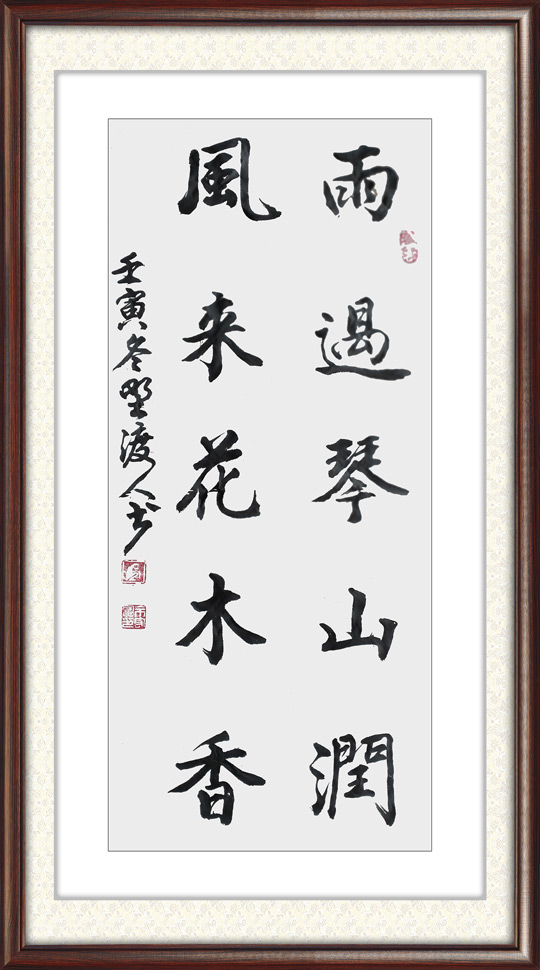 雨過琴山潤
風来花木香
壬寅冬野渡人书